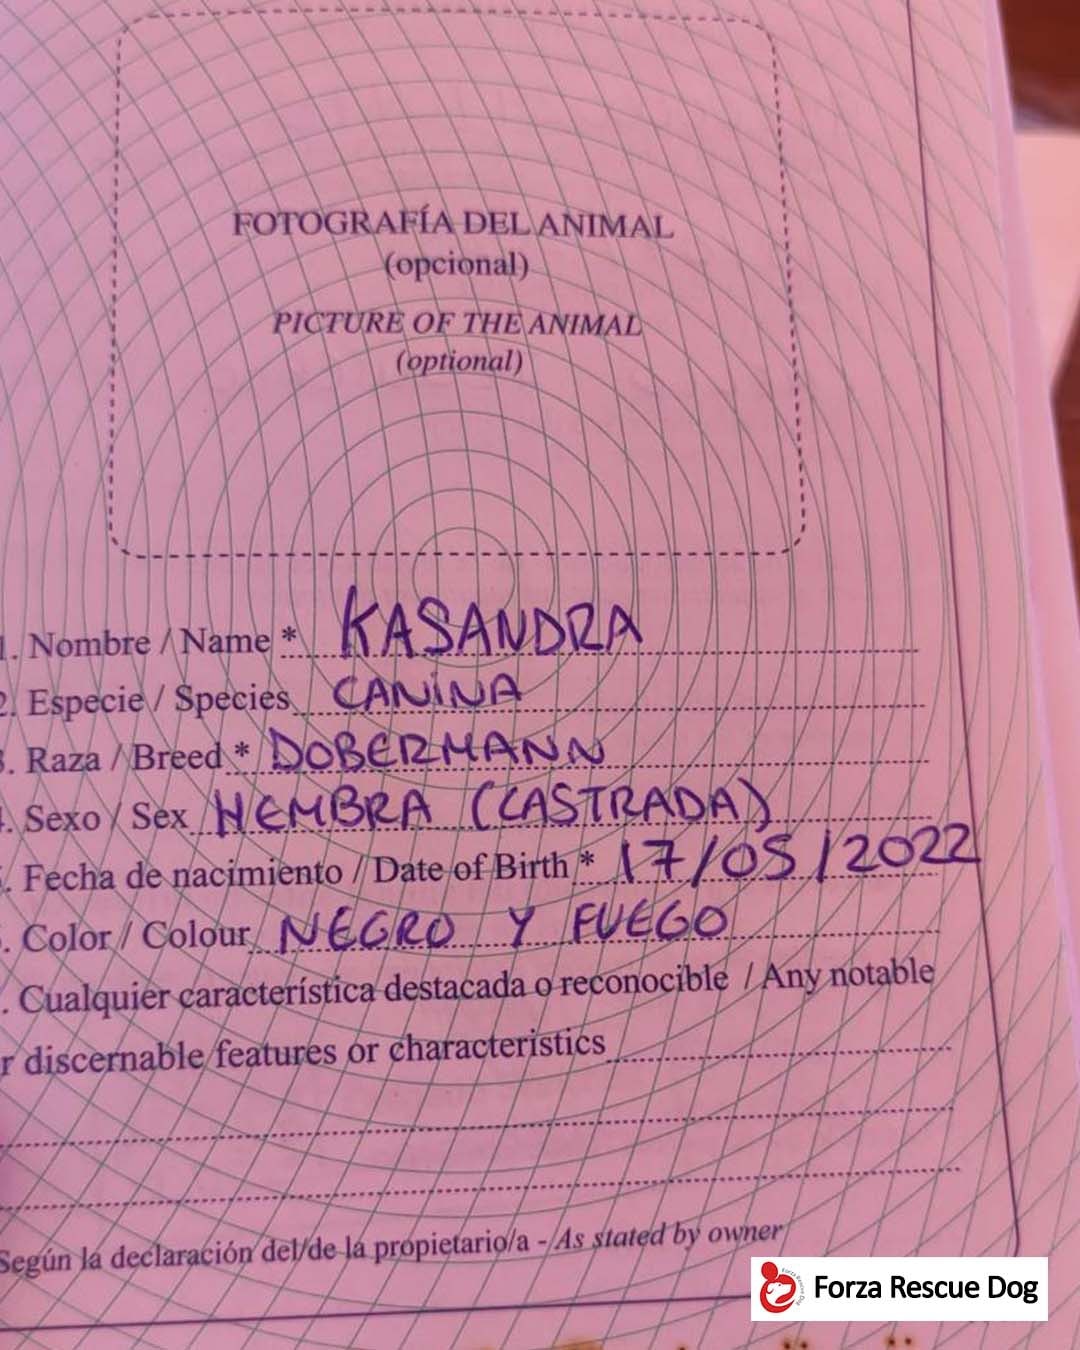 FOTOGRAFÍA DEL ANIMAL
(opcional)
PICTURE OF THE ANIMAL
(optional)
1. Nombre / Name * KASANDRA
2. Especie / Species CANINA
3. Raza / Breed * DOBERMANN
4. Sexo / Sex HEMBRA (CASTRADA)
5. Fecha de nacimiento / Date of Birth * 17/05/2022
6. Color / Colour NEGRO Y FUEGO
. Cualquier característica destacada o reconocible / Any notable
r discernable features or characteristics
Según la declaración del/de la propietario/a - As stated by owner
Forza Rescue Dog